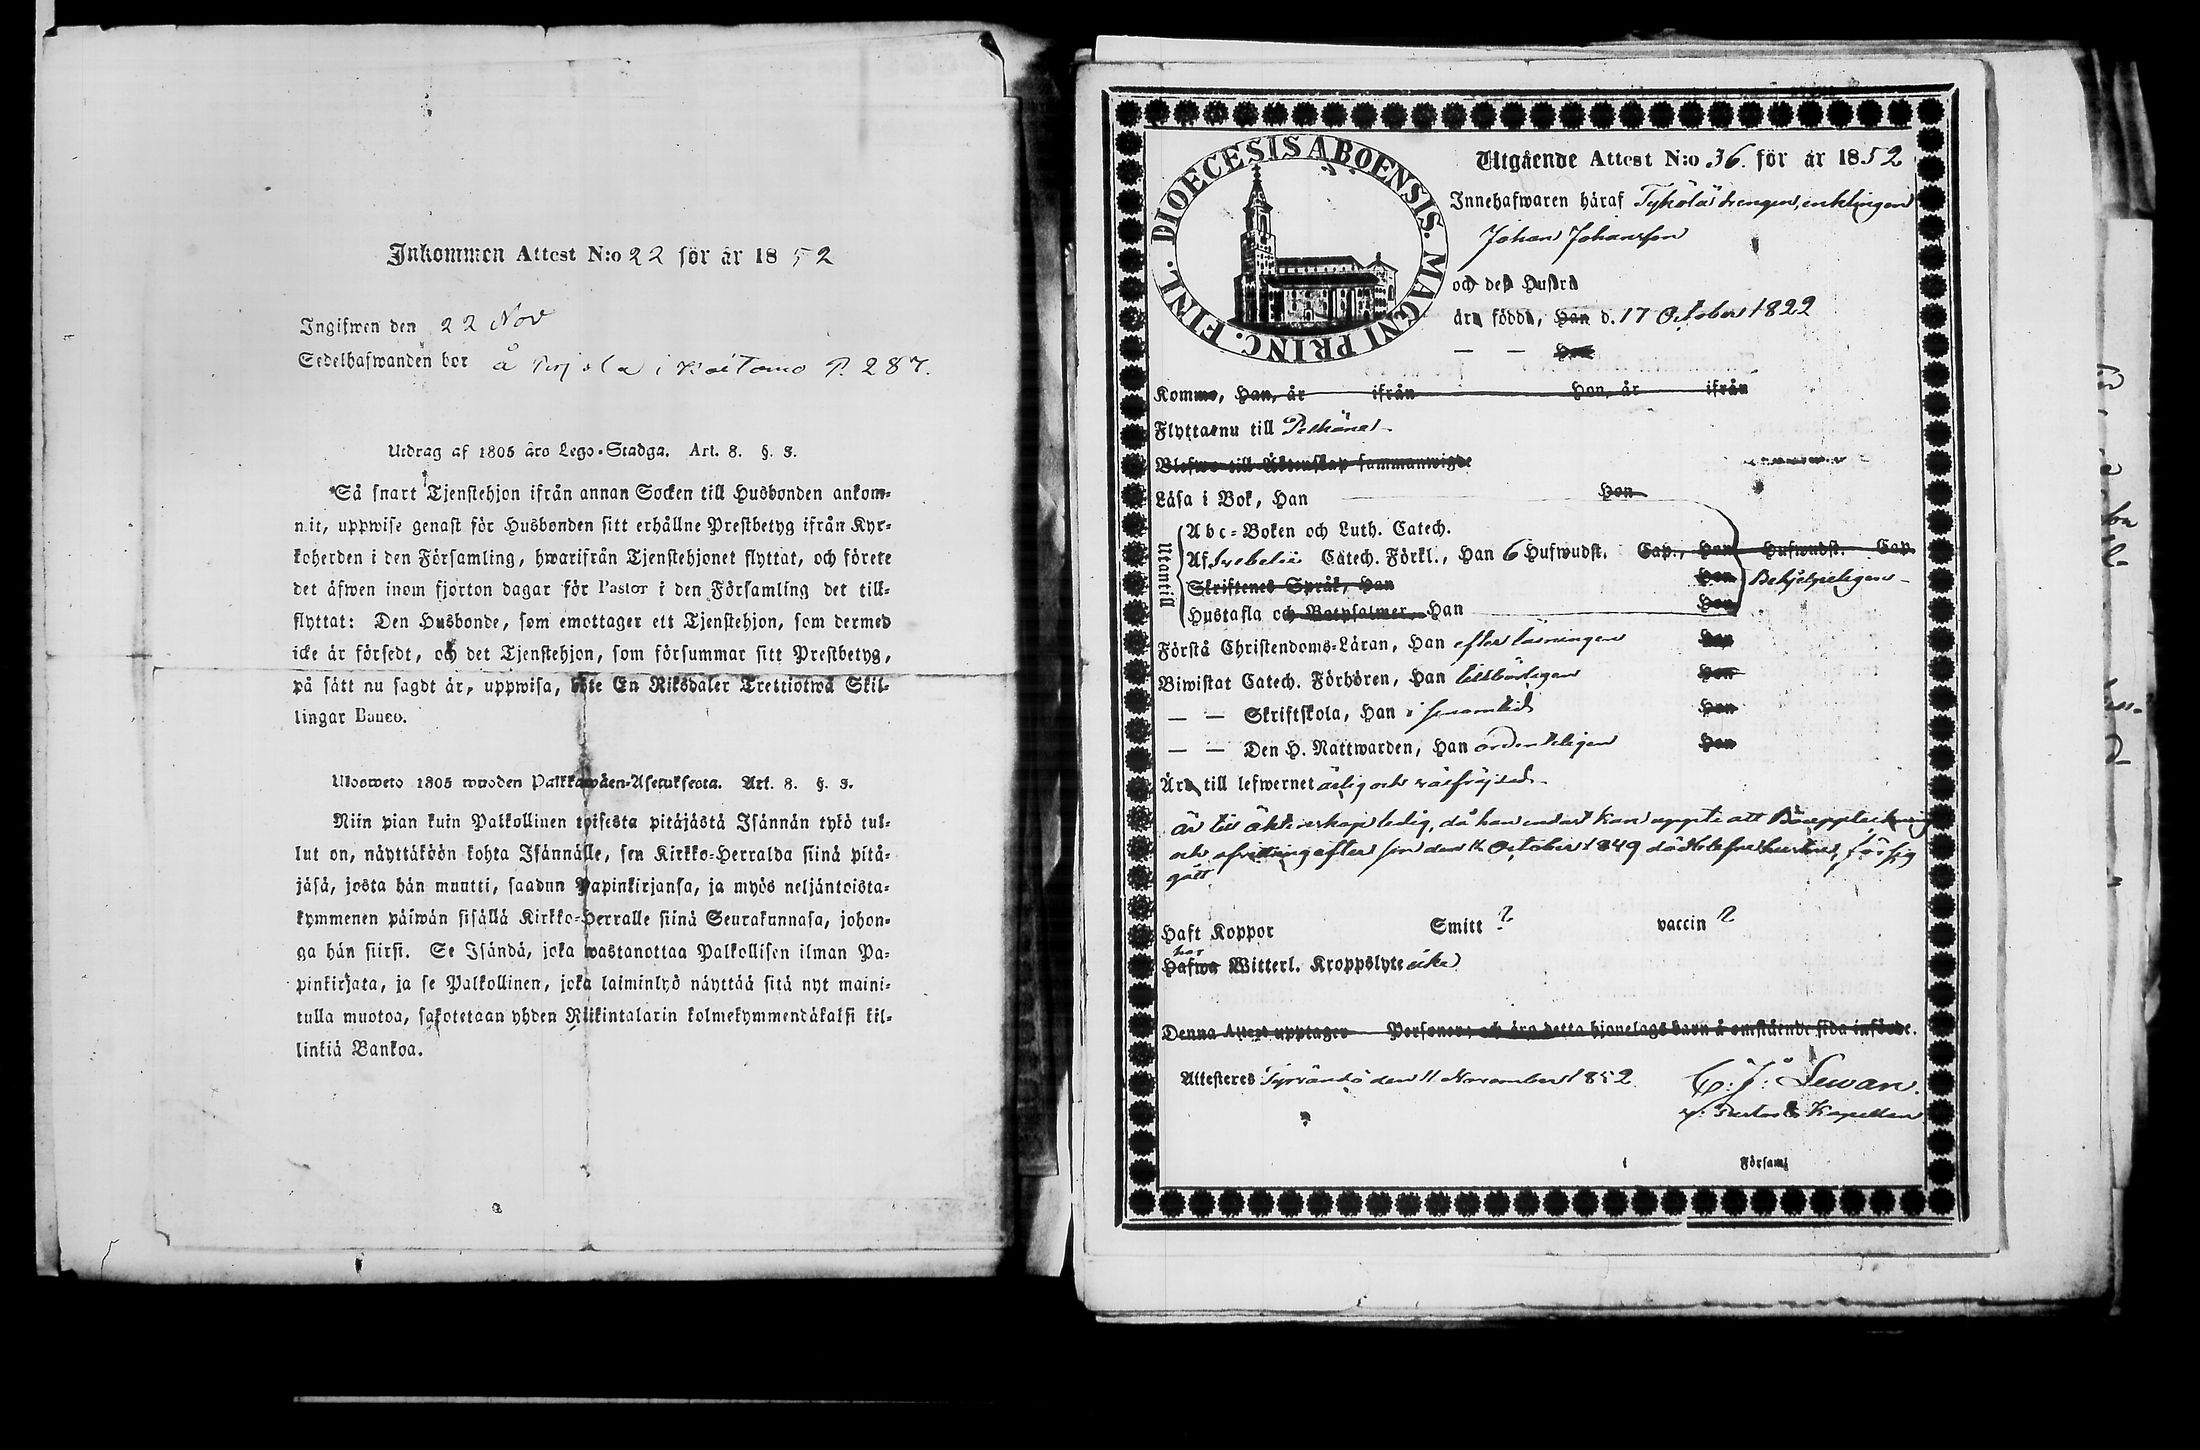 Inkommen Attest N:o 22 för år 1852
Ingifwen den 22 Nov
Sedelhafwanden bor å i P. 287.
Utdrag af 1805 års Lego-Stadga. Art. 8. §. 3.
Så snart Tjenstehjon ifrån annan Socken till Husbonden ankom-
mit, uppwise genast för Husbonden sitt erhållne Prestbetyg ifrån Kyr-
koherden i den Församling, hwarifrån Tjenstehjonet flyttat, och förete
det äfwen inom fjorton dagar för Pastor i den Församling det till-
flyttat: Den Husbonde, som emottager ett Tjenstehjon, som dermed
icke är försedt, och det Tjenstehjon, som försummar sitt Prestbetyg,
på sätt nu sagdt är, uppwisa, böte En Riksdaler Trettiotwå Skil-
lingar Banco.
Ulosweto 1805 wuoden Palkkawäen-Asetuksesta. Art. 8. §. 3.
Niin pian kuin Palkollinen toisesta pitäjästä Isännän tykö tul-
lut on, näyttäköön kohta Isännälle, sen Kirkko-Herralda siinä pitä-
jäsä, josta hän muutti, saadun Papinkirjansa, ja myös neljäntoista-
kymmenen päiwän sisällä Kirkko-Herralle siinä Seurakunnasa, johon-
ga hän siirsi. Se Isändä, joka wastanottaa Palkollisen ilman Pa-
pinkirjata, ja se Palkollinen, joka laiminlyö näyttää sitä nyt maini-
tulla muotoa, sakotetaan yhden Riikintalarin kolmekymmendäkaksi kil-
linkiä Bankoa.
DIOECESIS ABOENSIS. MAGNI PRINC. FINL.
Utgående Attest N:o 36. för år 1852
Innehafwaren häraf Tyhölä drengen, enklingen
Johan Johansson
och deß Hustru
äro födde, Han d. 17 October 1822
— — Hon
Komne, Han, år ifrån Hon, år ifrån
Flytta nu till Pelkäne
Blefwo till Äktenskap sammanwigde
Läsa i Bok, Han Hon
Utantill
Abc-Boken och Luth. Catech.
Af Svebelii Catech. Förkl., Han 6 Hufwudst. Cap., Hon Hufwudst. Cap.
Skriftenes Språk, Han Hon Behjelpeligen
Hustafla och Botpsalmer, Han Hon
Förstå Christendoms-Läran, Han efter läsningen Hon
Biwistat Catech. Förhören, Han tillbörligen Hon
— — Skriftskola, Han i Hon
— — Den H. Nattwarden, Han ordenteligen Hon
Äro till lefwernet ärlig och wälfräjdad
är till äktenskap ledig, då han endast kan uppte att Bouppteckning
och afwittring efter den October 1849 döde hustru, försig
gått
Haft Koppor Smitt ? vaccin ?
har
Hafwa Witterl. Kroppslyte icke
Denna Attest upptager Personer, och äro detta hjonelags barn å omstående sida införde.
Attesteres Tyrvändö den 11 November 1852.
C. J. Lewan.
v. Pastor & Kapellan
i Församl